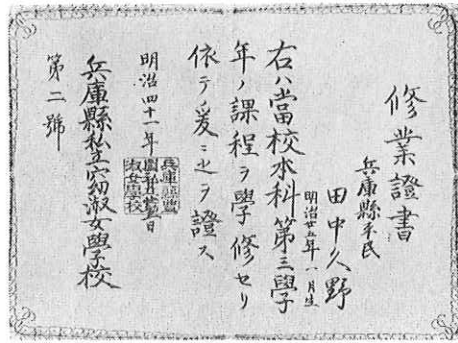 修業證書
兵庫縣平民
田中久野
明治廿五年八月生
右ハ當校本科第三學
年ノ課程ヲ學修セリ
依テ爰ニ之ヲ證ス
明治四十一年
兵庫縣私立窈淑女學校
第二號